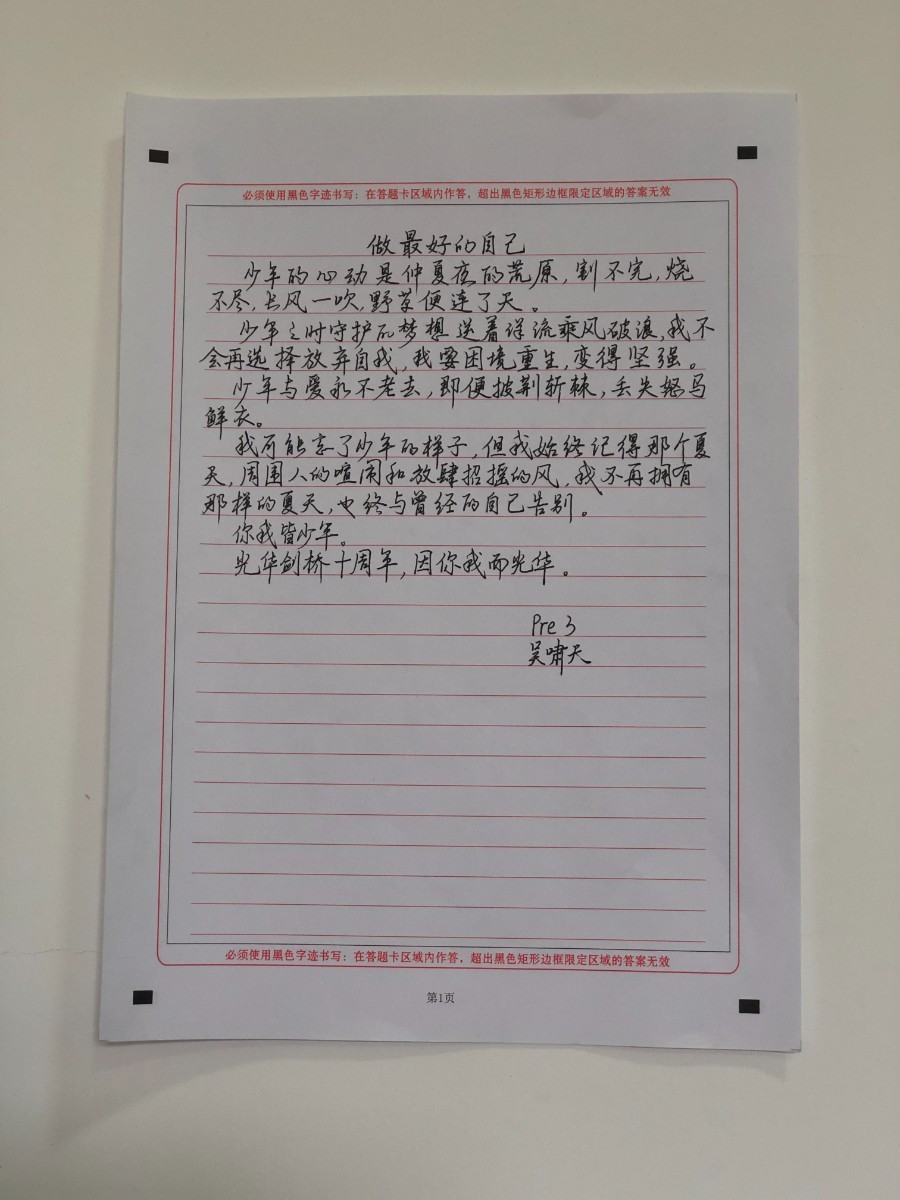 必须使用黑色字迹书写：在答题卡区域内作答，超出黑色矩形边框限定区域的答案无效
做最好的自己
少年的心动是仲夏夜的荒原，割不完，烧
不尽，长风一吹，野草便连了天。
少年之时守护的梦想逆着洋流乘风破浪，我不
会再选择放弃自我，我要困境重生，变得坚强。
少年与爱永不老去，即便披荆斩棘，丢失怒马
鲜衣。
我可能忘了少年的样子，但我始终记得那个夏
天，周围人的喧闹和放肆招摇的风，我不再拥有
那样的夏天，也终与曾经的自己告别。
你我皆少年。
光华剑桥十周年，因你我而光华。
Pre 3
吴啸天
必须使用黑色字迹书写：在答题卡区域内作答，超出黑色矩形边框限定区域的答案无效
第1页